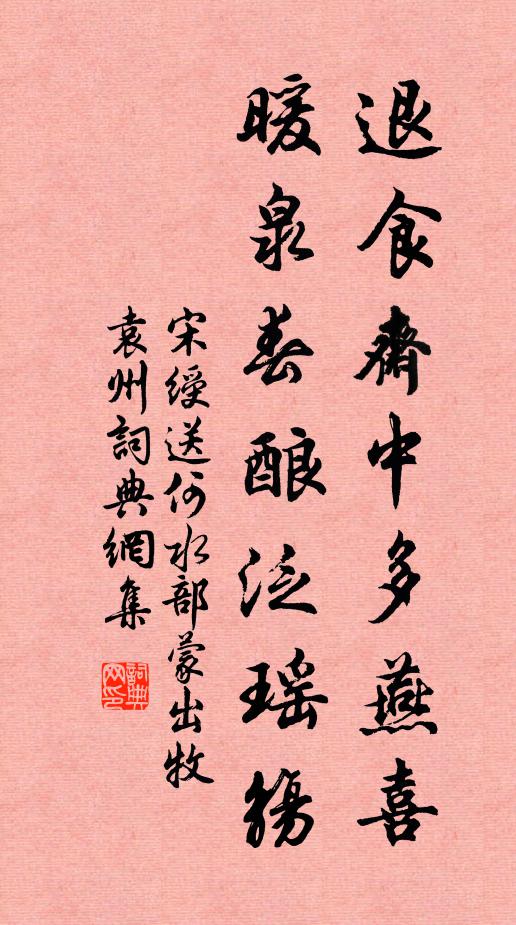 退食齋中多燕喜
暖泉春酿泛瑶觴
宋綬送何水部蒙出牧
袁州詞典網集
詞典网印